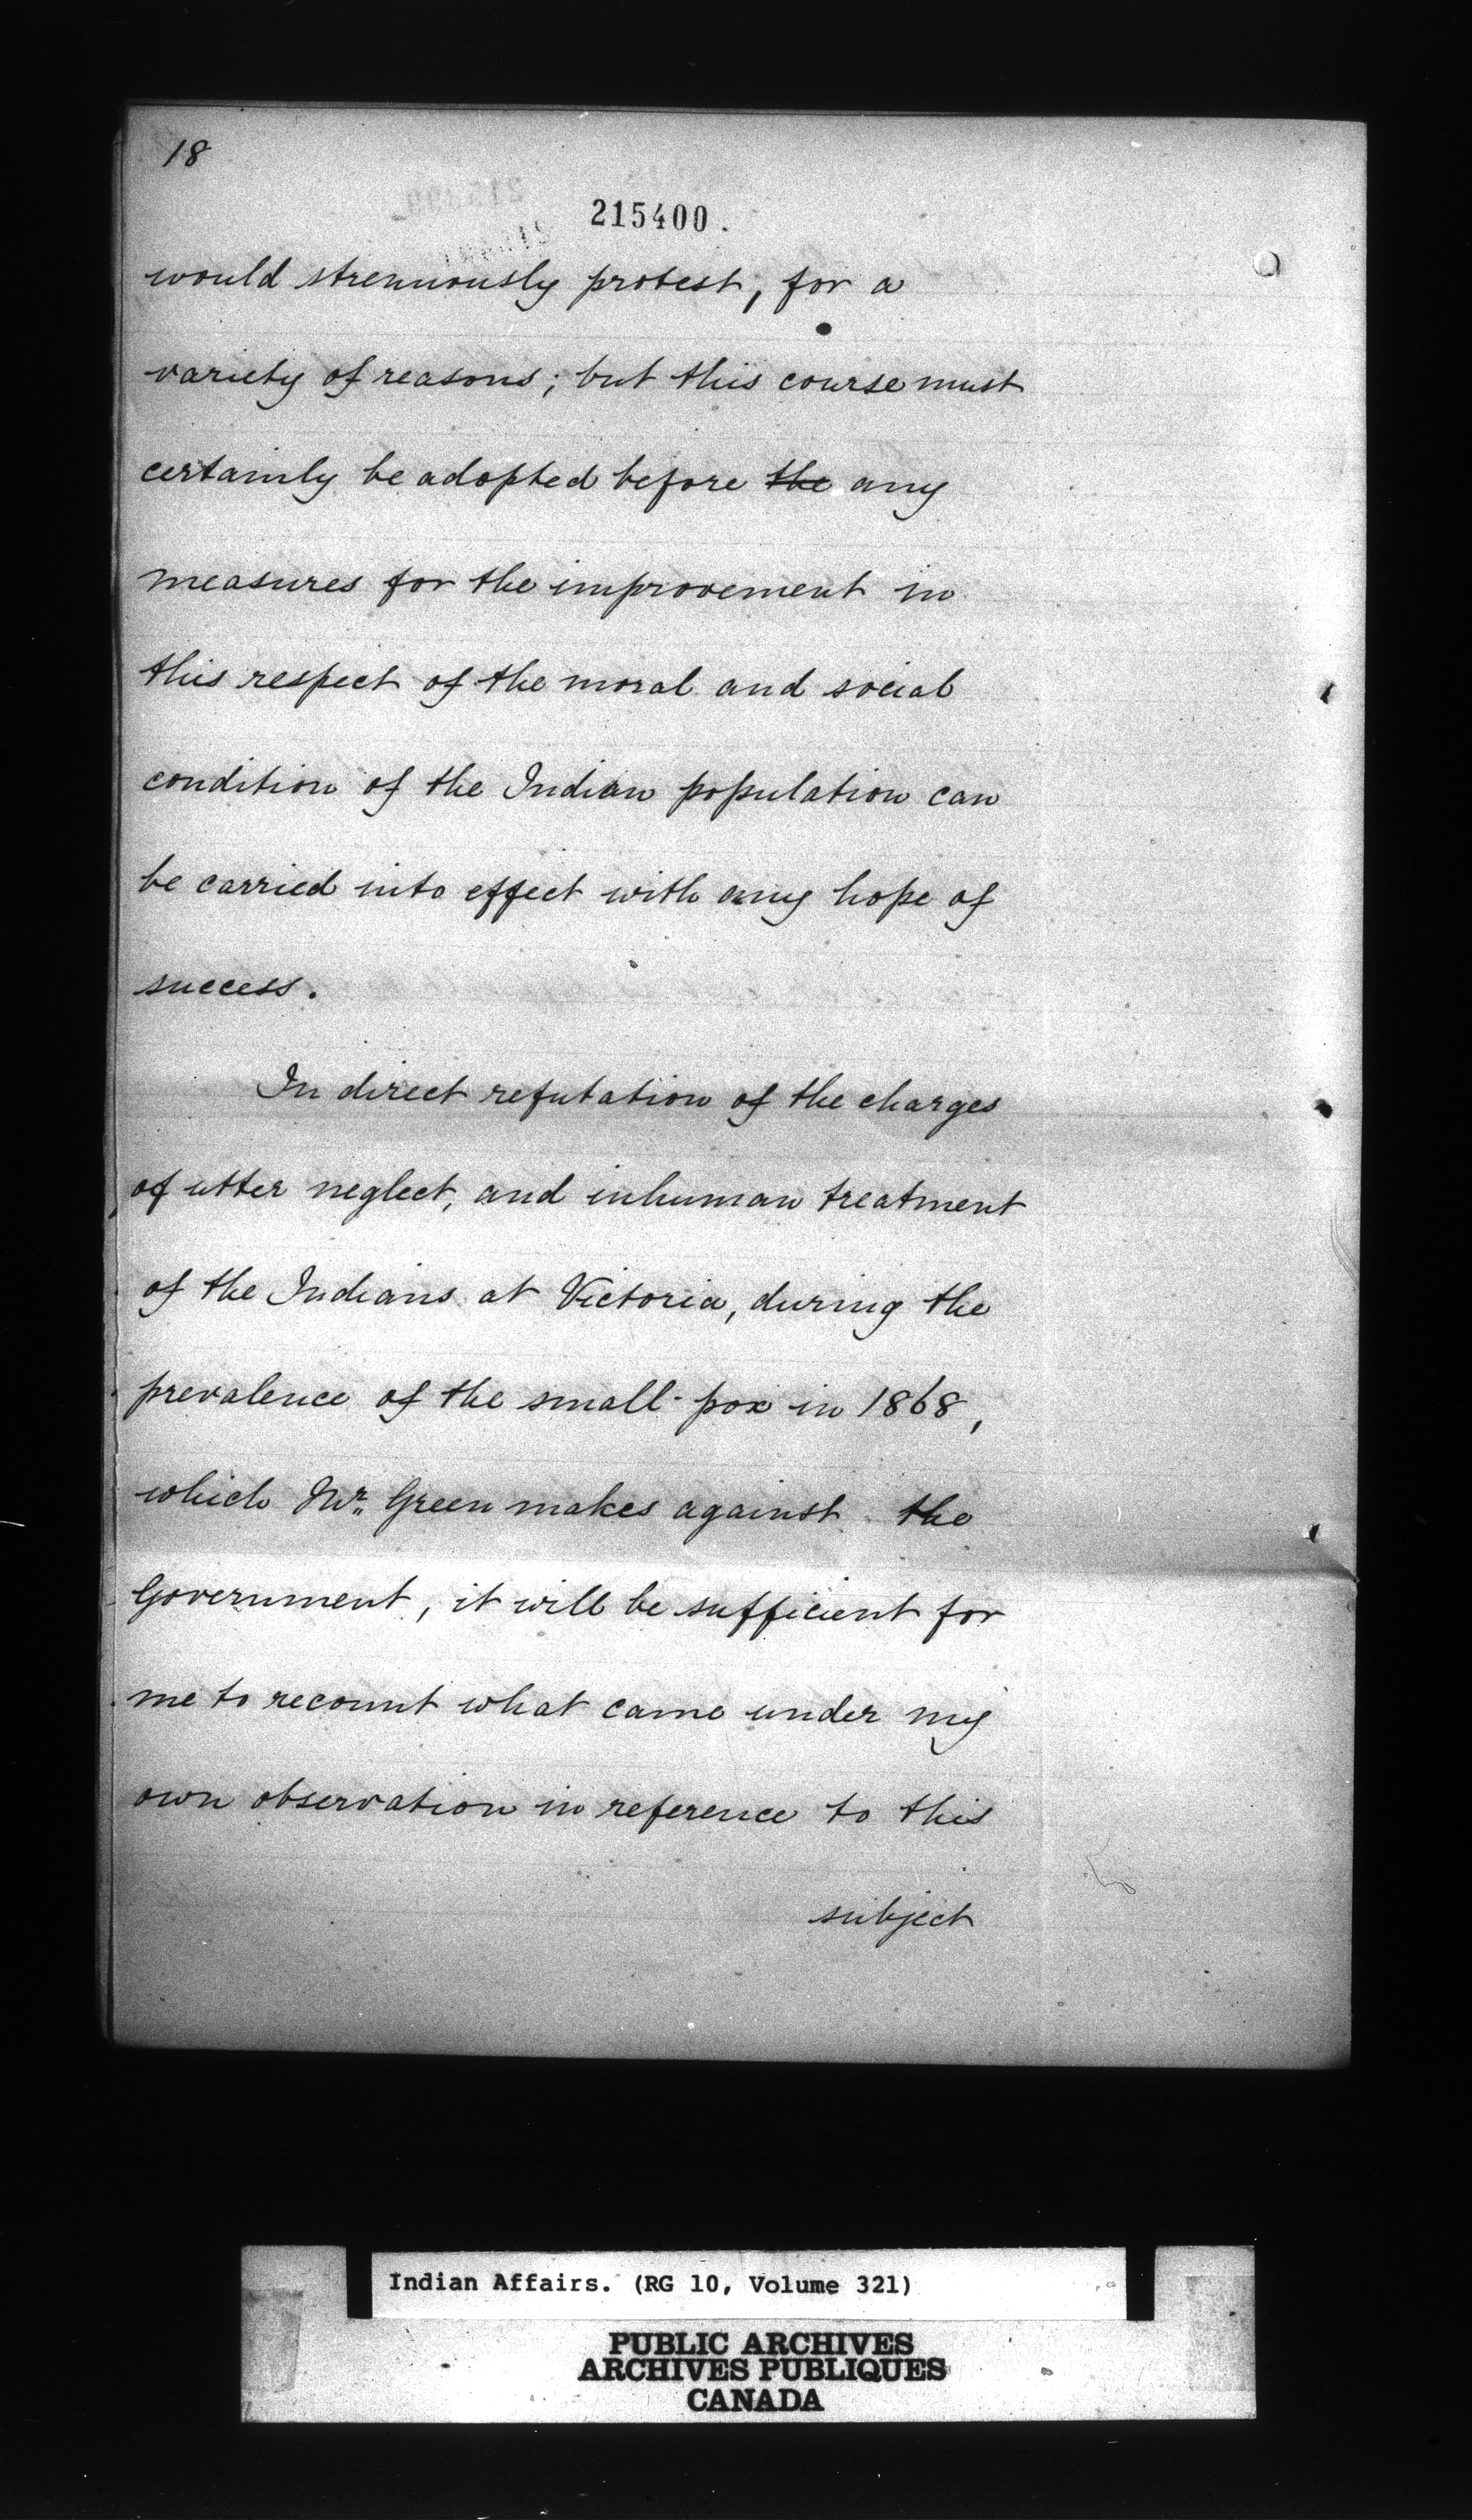 18
215400.
would strenuously protest, for a
variety of reasons; but this course must
certainly be adopted before the any
measures for the improvement in
this respect of the moral and social
condition of the Indian population can
be carried into effect with any hope of
success.
In direct refutation of the charges
of utter neglect, and inhuman treatment
of the Indians at Victoria, during the
prevalence of the small-pox in 1868,
which Mr. Green makes against the
Government, it will be sufficient for
me to recount what came under my
own observation in reference to this
subject
Indian Affairs. (RG 10, Volume 321)
PUBLIC ARCHIVES
ARCHIVES PUBLIQUES
CANADA